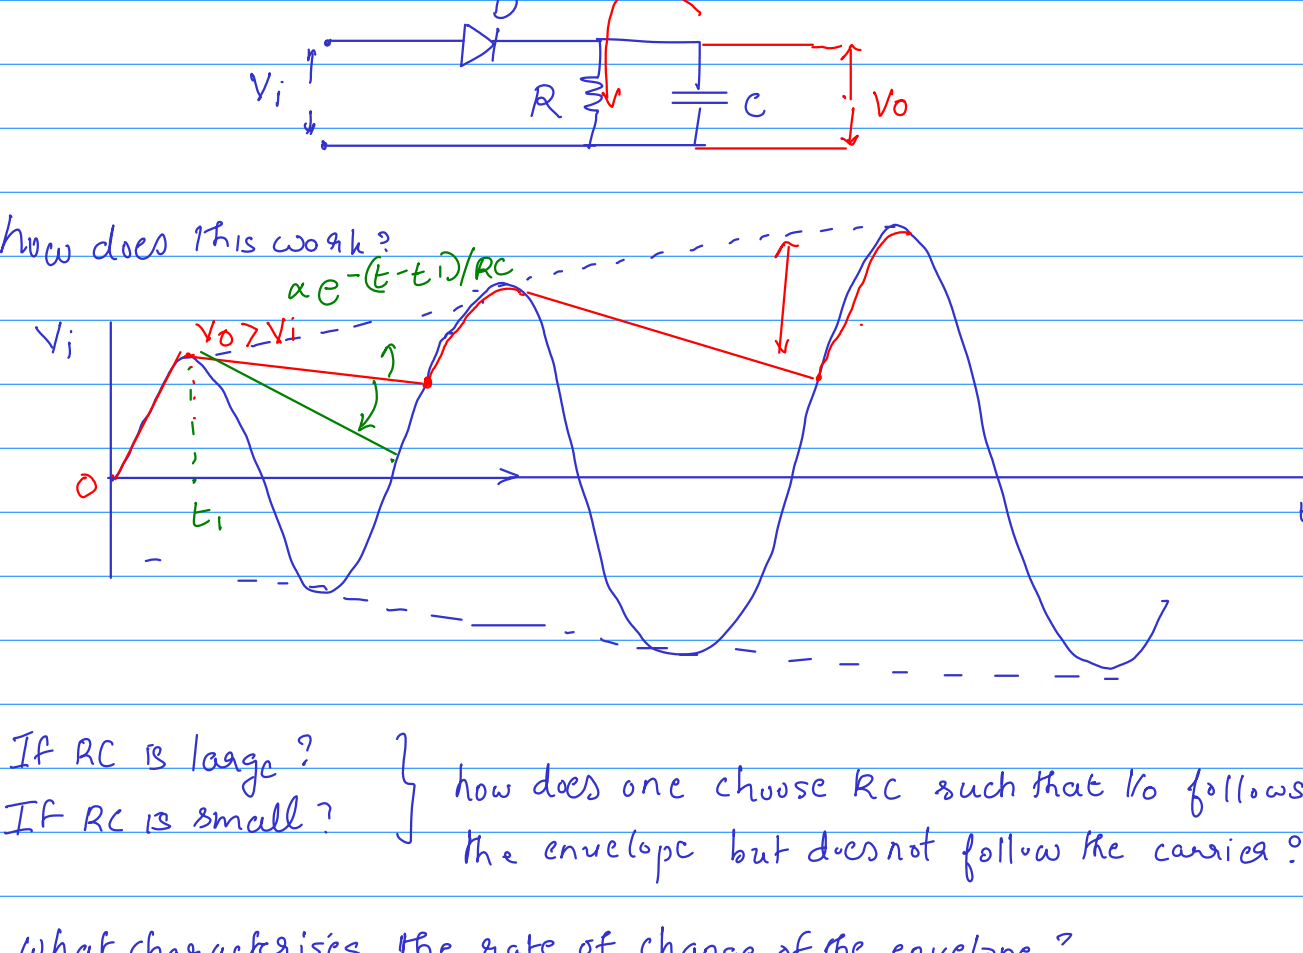 D
Vi
R
C
Vo
how does this work?
α e^-(t-t1)/RC
Vi
Vo > Vi
0
t1
If RC is large?
If RC is small?
how does one choose RC such that Vo follows
the envelope but does not follow the carrier?
what characterises the rate of change of the envelope?